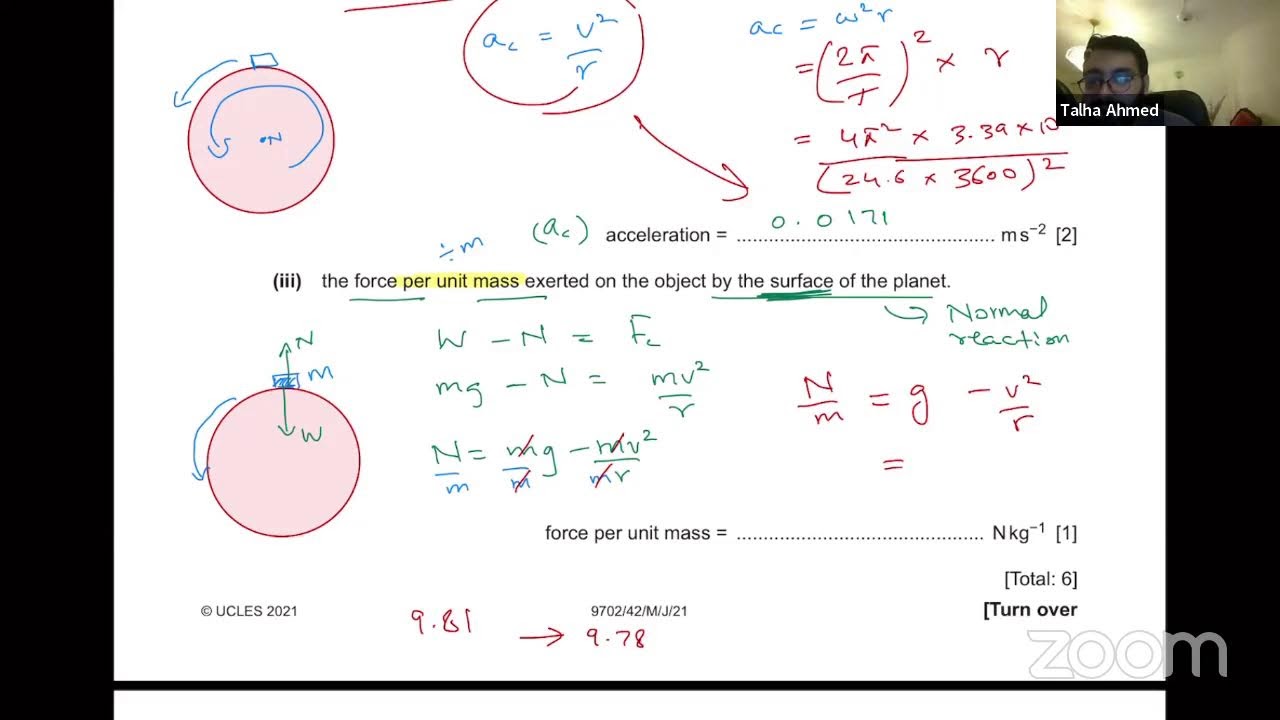 a_c = v²/r
a_c = ω²r
= (2π/T)² × r
= 4π² × 3.39 × 10
(24.6 × 3600)²
Talha Ahmed
N
(a_c) acceleration = 0.0171 ms⁻² [2]
÷m
(iii) the force per unit mass exerted on the object by the surface of the planet.
Normal
reaction
N
m
W
W - N = F_c
mg - N = mv²/r
N/m = mg/m - mv²/mr
N/m = g - v²/r
=
force per unit mass = ................................................ Nkg⁻¹ [1]
[Total: 6]
© UCLES 2021 9702/42/M/J/21 [Turn over
9.81 → 9.78
zoom